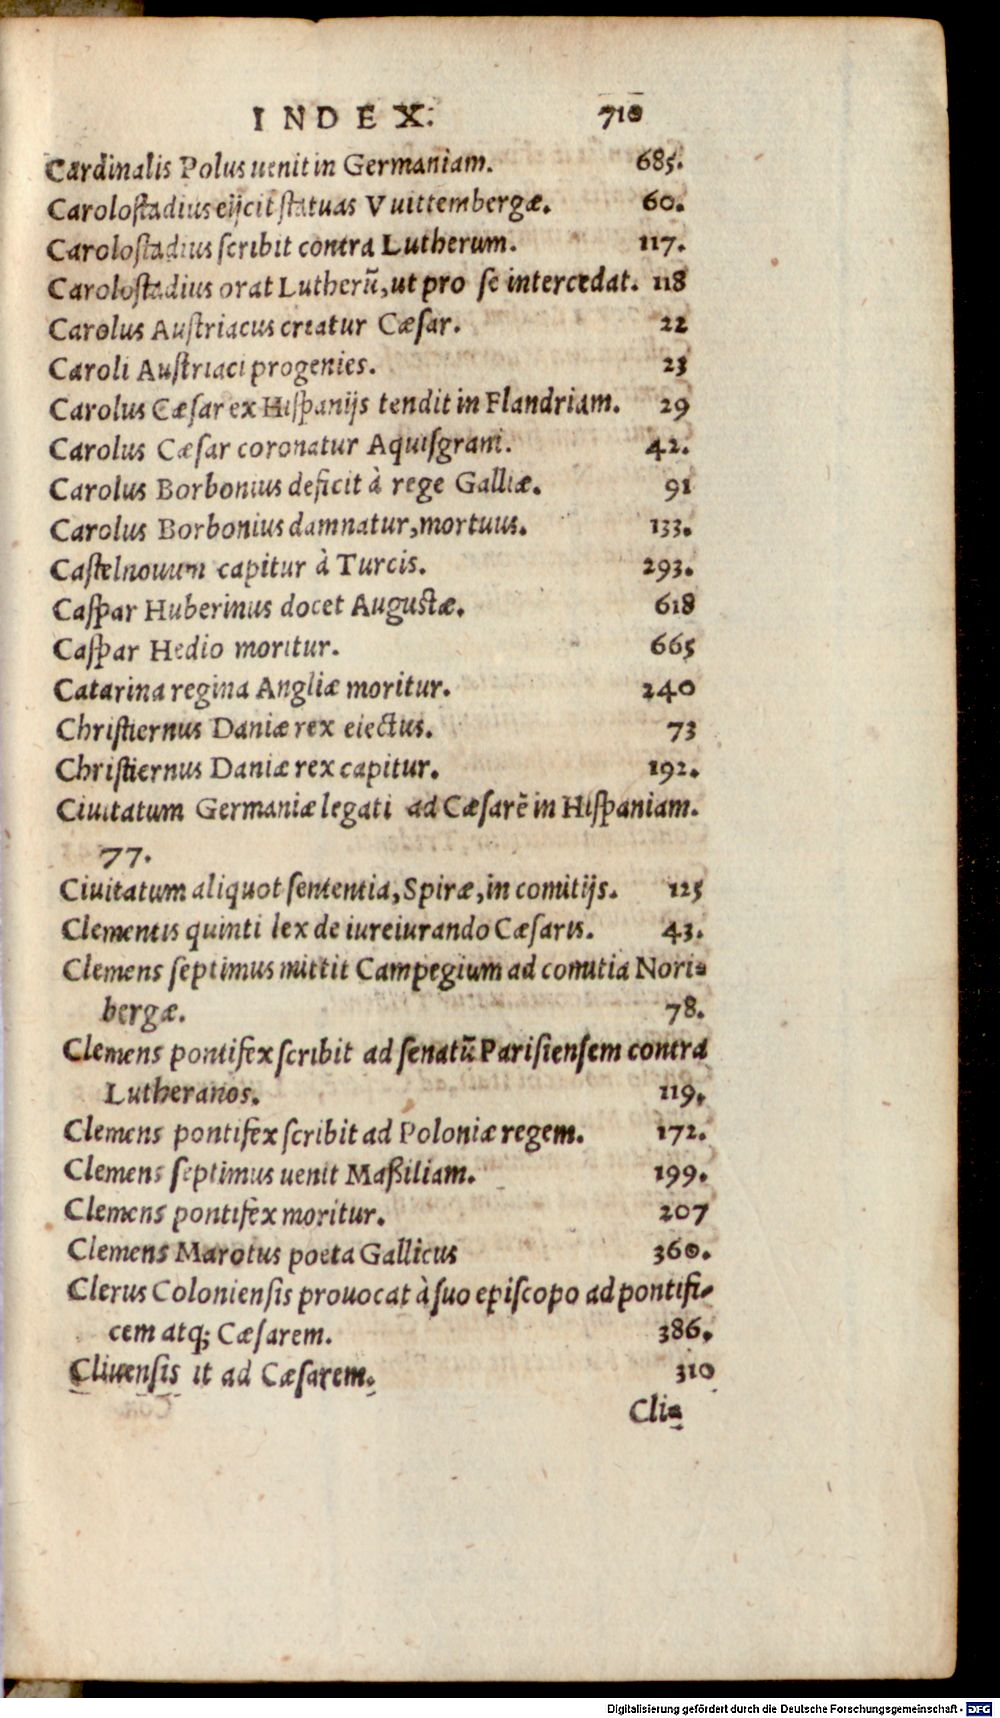 INDEX. 710
Cardinalis Polus uenit in Germaniam. 685.
Carolostadius eijcit statuas Vuittembergæ. 60.
Carolostadius scribit contra Lutherum. 117.
Carolostadius orat Lutherū, ut pro se intercedat. 118
Carolus Austriacus creatur Cæsar. 22
Caroli Austriaci progenies. 23
Carolus Cæsar ex Hispanijs tendit in Flandriam. 29
Carolus Cæsar coronatur Aquisgrani. 42.
Carolus Borbonius deficit à rege Galliæ. 91
Carolus Borbonius damnatur, mortuus. 133.
Castelnouum capitur à Turcis. 293.
Caspar Huberinus docet Augustæ. 618
Caspar Hedio moritur. 665
Catarina regina Angliæ moritur. 240
Christiernus Daniæ rex eiectus. 73
Christiernus Daniæ rex capitur. 192.
Ciuitatum Germaniæ legati ad Cæsarē in Hispaniam.
77.
Ciuitatum aliquot sententia, Spiræ, in comitijs. 125
Clementis quinti lex de iureiurando Cæsaris. 43.
Clemens septimus mittit Campegium ad comitia Nori-
bergæ. 78.
Clemens pontifex scribit ad senatū Parisiensem contra
Lutheranos. 119.
Clemens pontifex scribit ad Poloniæ regem. 172.
Clemens septimus uenit Maßiliam. 199.
Clemens pontifex moritur. 207
Clemens Marotus poeta Gallicus 360.
Clerus Coloniensis prouocat à suo episcopo ad pontifi-
cem atq; Cæsarem. 386.
Cliuensis it ad Cæsarem. 310
Cli-
Digitalisierung gefördert durch die Deutsche Forschungsgemeinschaft - DFG